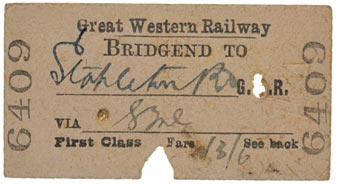 Great Western Railway
BRIDGEND TO
Stapleton Rd G. R.
VIA
First Class Fare 13/6 See back
6409
6409